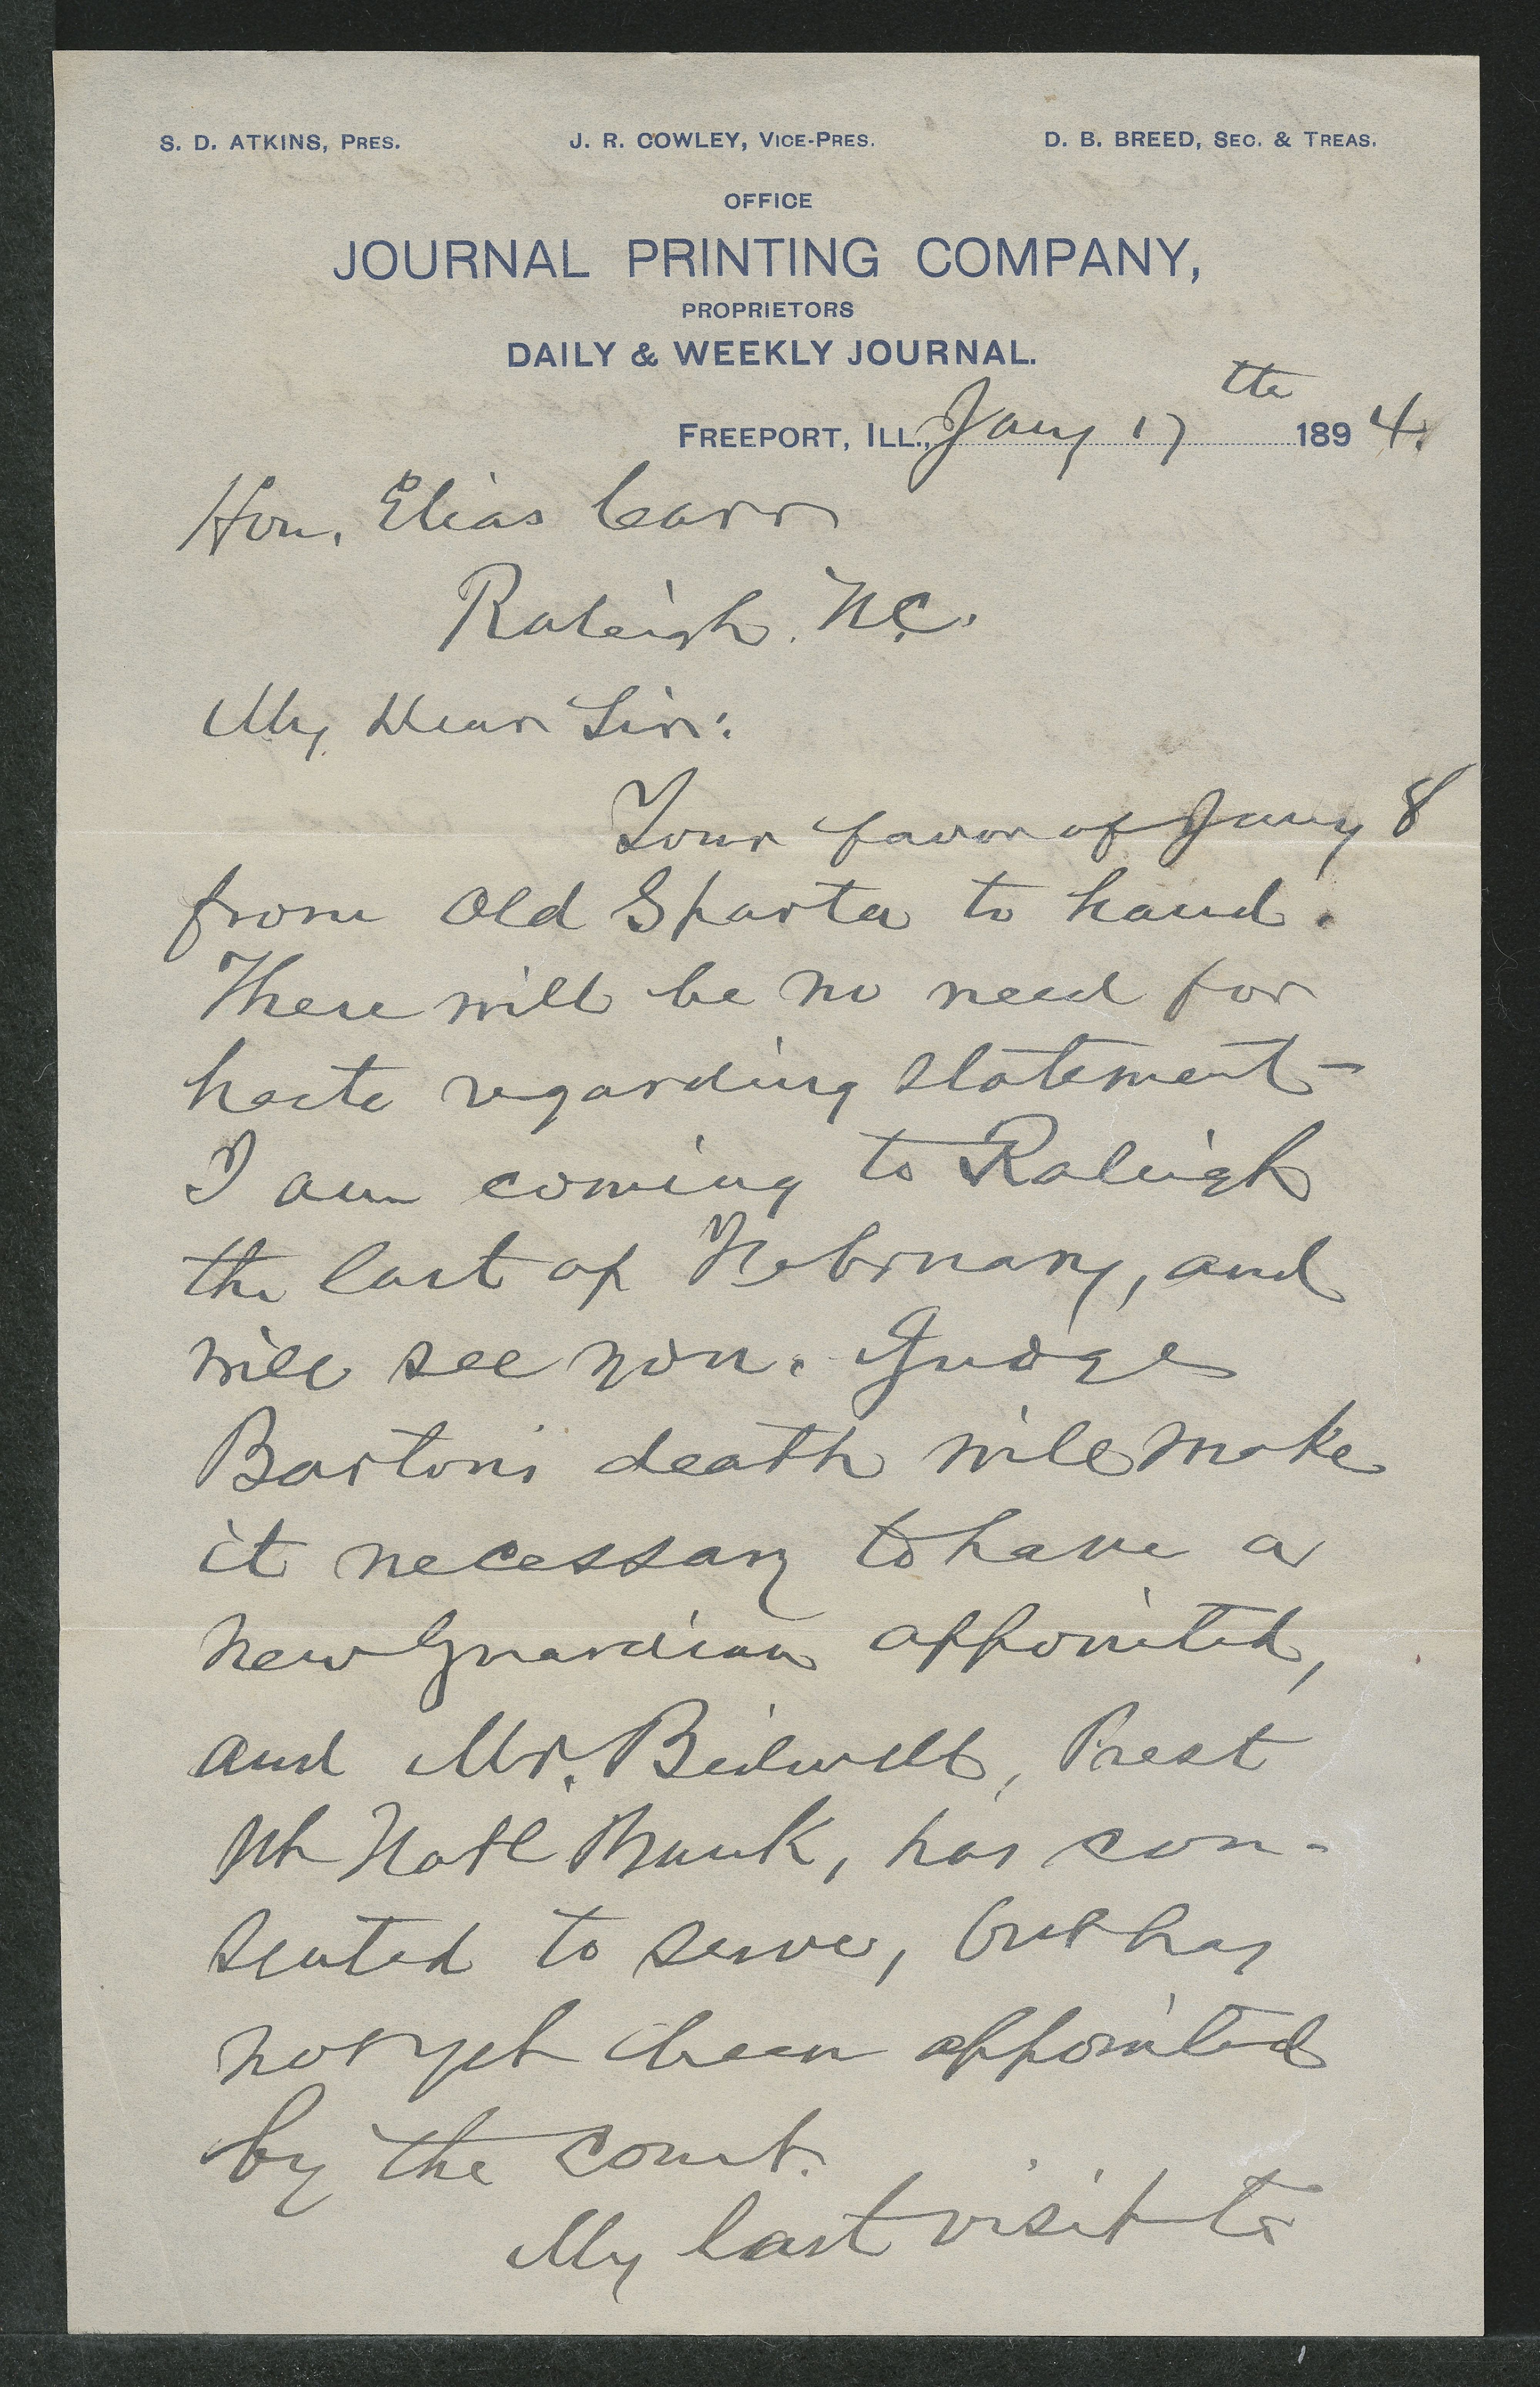 S. D. ATKINS, PRES. J. R. COWLEY, VICE-PRES. D. B. BREED, SEC. & TREAS.
OFFICE
JOURNAL PRINTING COMPANY,
PROPRIETORS
DAILY & WEEKLY JOURNAL.
FREEPORT, ILL., Jany 17th 1894.
Hon. Elias Carr
Raleigh. N.C.
My Dear Sir:
Your favor of Jany 8
from Old Sparta to hand.
There will be no need for
haste regarding statement—
I am coming to Raleigh
the last of February, and
will see you. Judge
Barton's death will make
it necessary to have a
new Guardian appointed,
and Mr. Bidwell, Prest
Natl Bank, has con-
sented to serve, but has
not yet been appointed
by the court.
My last visit to